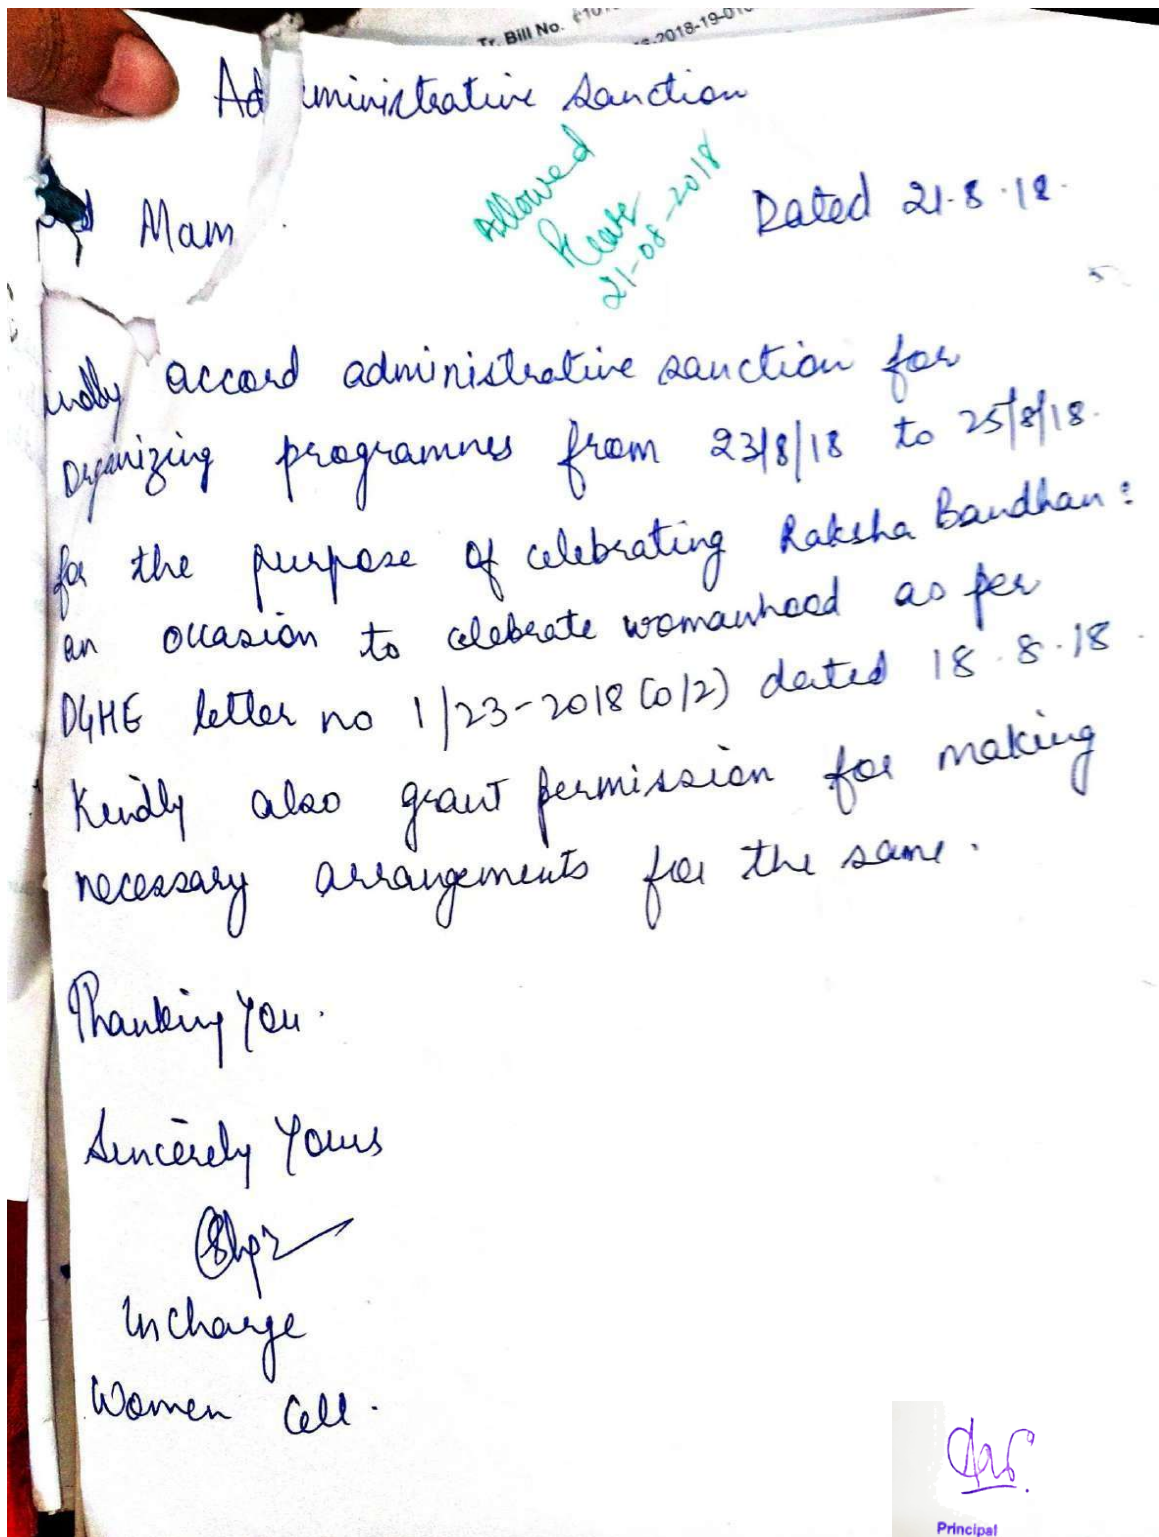 Tr. Bill No.
2018-19-
Administrative Sanction
Mam.
Allowed
21-08-2018
Dated 21.8.18.
indly accord administrative sanction for
Organizing programmes from 23/8/18 to 25/8/18.
for the purpose of celebrating Raksha Bandhan:
an occasion to celebrate womanhood as per
DGHE letter no 1/23-2018 Co(2) dated 18.8.18.
Kindly also grant permission for making
necessary arrangements for the same.
Thanking You.
Sincerely Yours
Incharge
Women Cell.
Principal